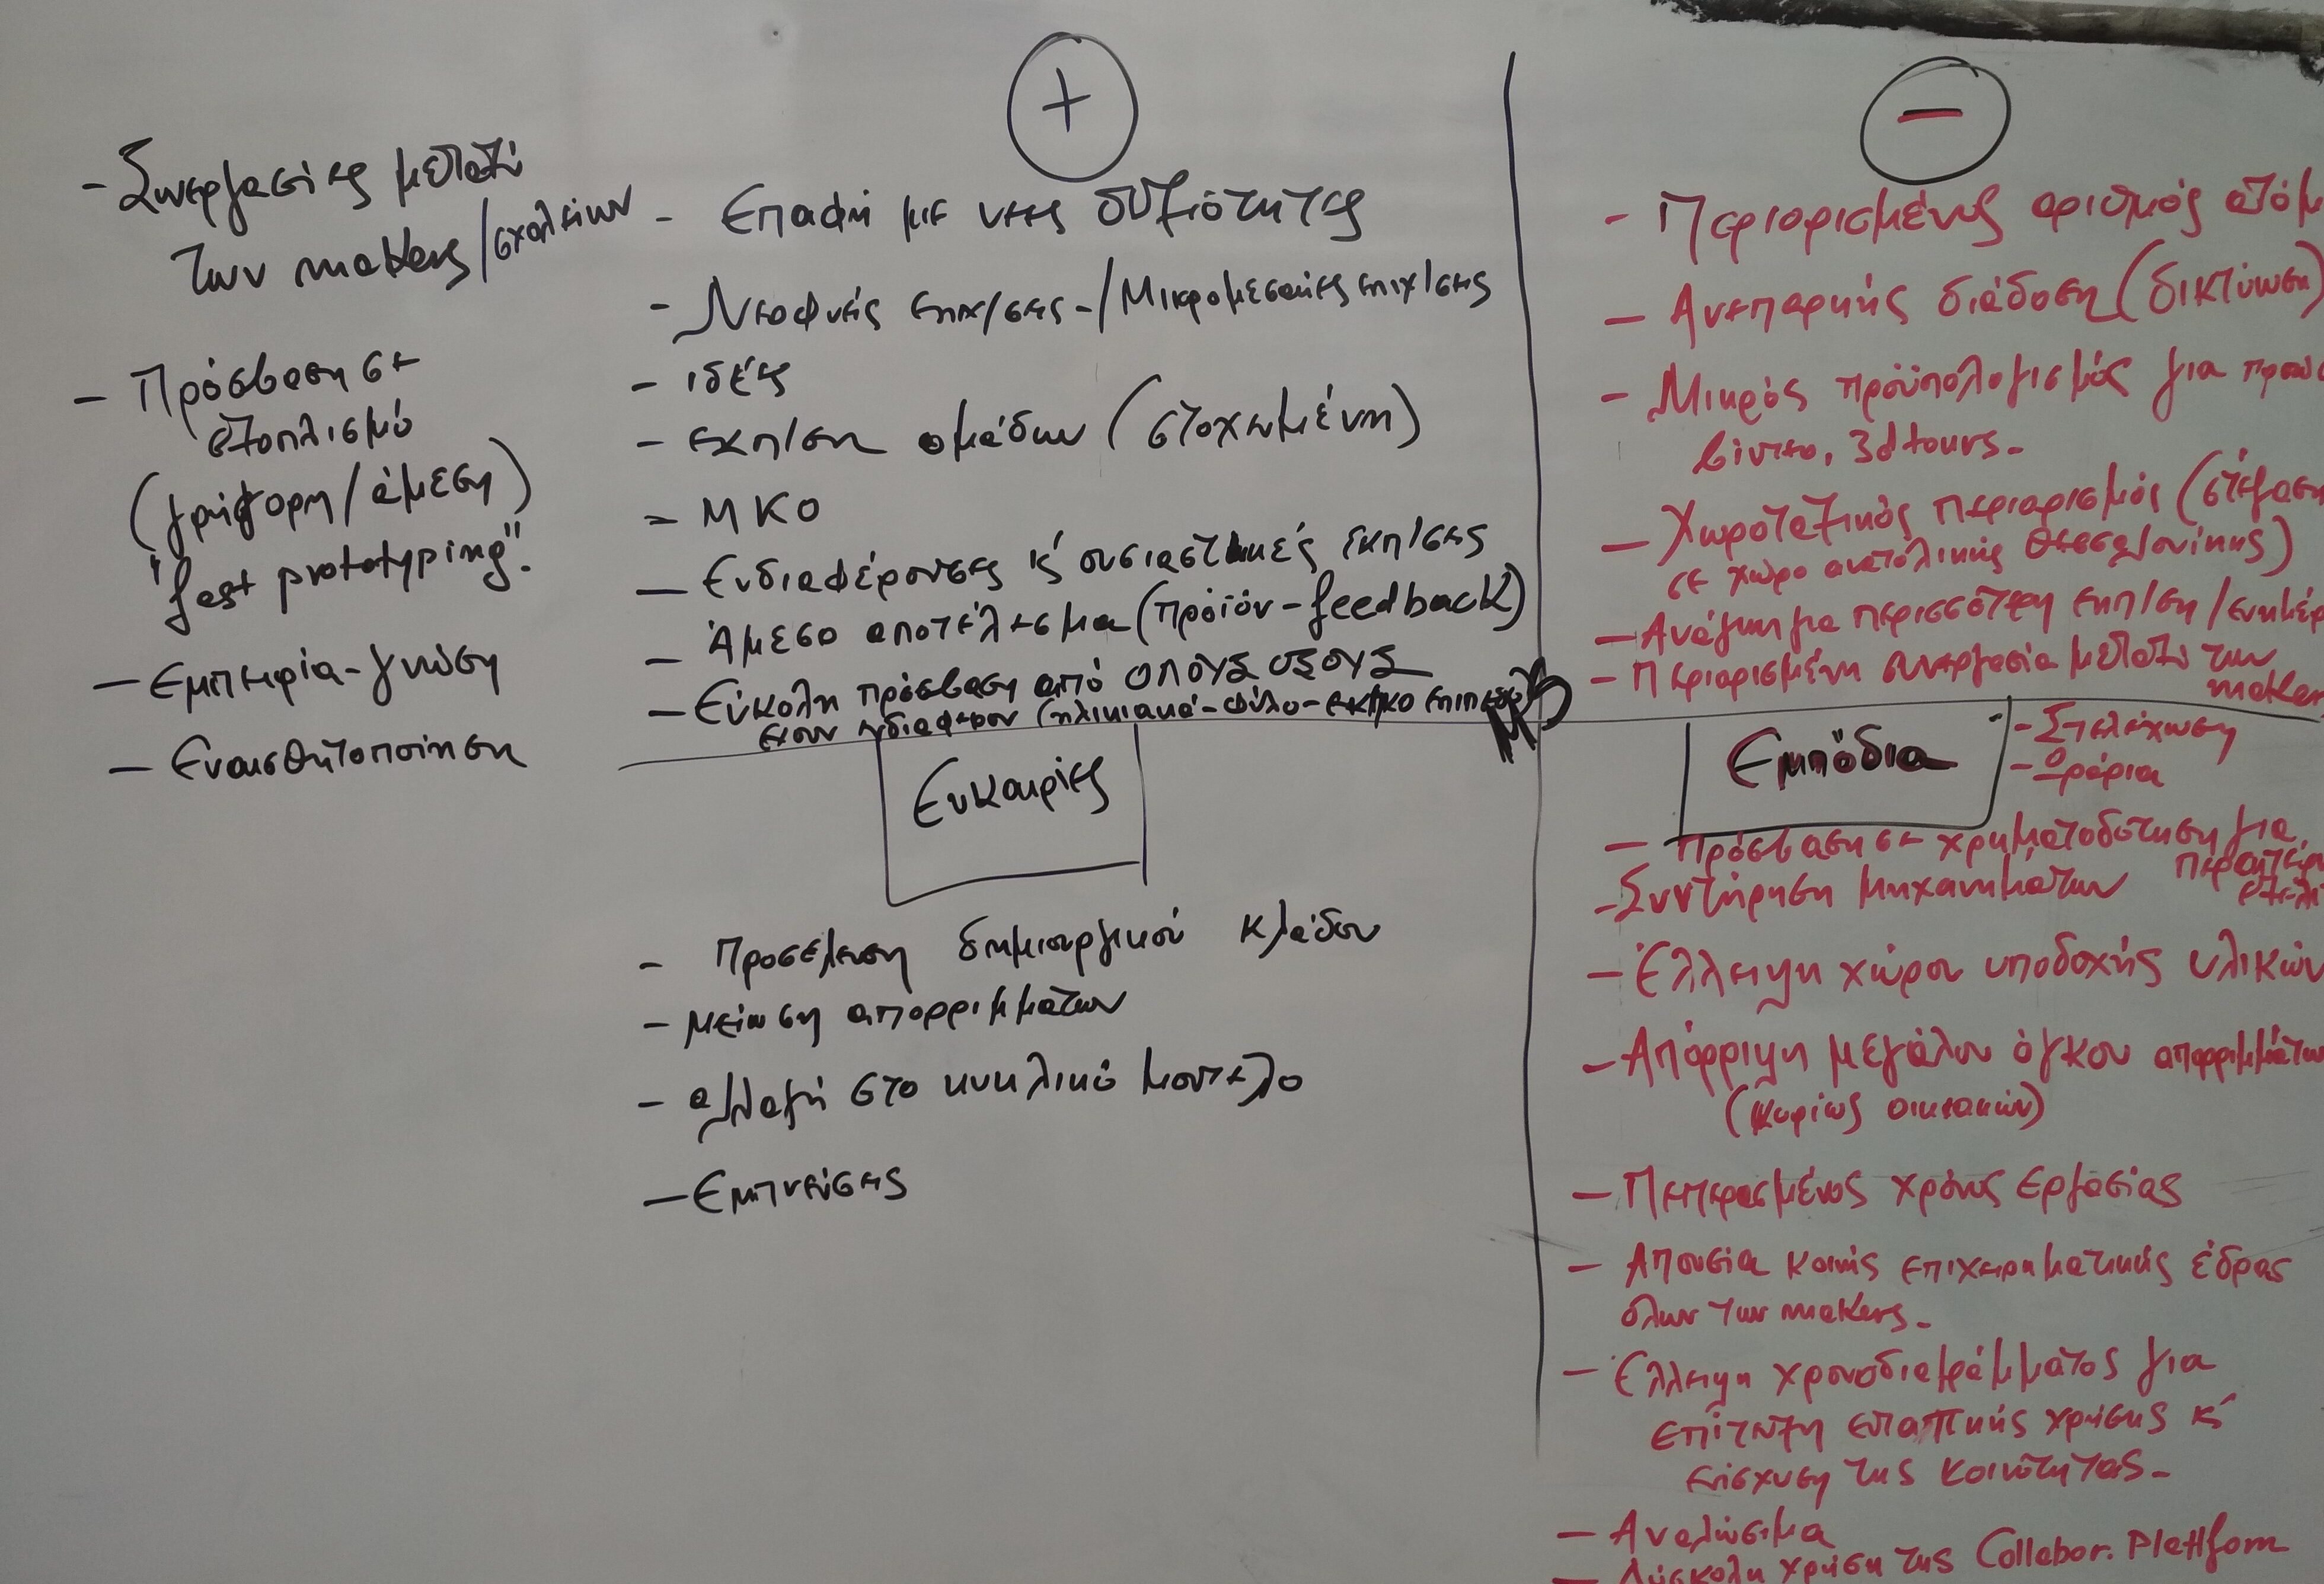 +
- Συνεργασίες μεταξύ
των makers/σχολείων
- Πρόσβαση σε
εξοπλισμό
(γρήγορη/άμεση)
"fast prototyping".
- Εμπειρία-γνώση
- Ευαισθητοποίηση
- Επαφή με νέες
- Νεοφυείς επιχ/σεις-/Μικρομεσαίες επιχ/σεις
- ιδέες
- εκπ/ση ομάδων (στοχευμένη)
- ΜΚΟ
- Ενδιαφέρουσες κ' ουσιαστικές εκπ/σεις
- Άμεσο αποτέλεσμα (προϊόν-feedback)
- Εύκολη πρόσβαση από ΟΛΟΥΣ ΟΣΟΥΣ
έχουν ενδιαφέρον (ηλικιακά-φύλο-
Ευκαιρίες
- Προσέλευση δημιουργικού κλάδου
- μείωση απορριμμάτων
- αλλαγή στο κυκλικό μοντέλο
- Εμπνεύσεις
−
- Περιορισμένος αριθμός ατόμ
- Ανεπαρκής διάδοση (δικτύωση)
- Μικρός προϋπολογισμός για
βίντεο, 3d tours.
- Χωροταξικός περιορισμός (στέγαση
σε χώρο ανατολικής Θεσσ/ονίκης)
- Ανάγκη για περισσότερη εκπ/ση/ενημέρ
- Περιορισμένη συνεργασία μεταξύ των
makers
Εμπόδια
- Στελέχωση
- Ωράρια
- Πρόσβαση σε χρηματοδότηση για
περαιτέρω
- Συντήρηση μηχανημάτων
- Έλλειψη χώρου υποδοχής υλικών
- Απόρριψη μεγάλου όγκου απορριμμάτων
(κυρίως οικιακών)
- Πεπερασμένος χρόνος εργασίας
- Απουσία κοινής επιχειρηματικής έδρας
όλων των makers.
- Έλλειψη χρονοδιαγράμματος για
επίτευξη εντατικής χρήσης κ'
ενίσχυση της κοινότητας.
- Αναλώσιμα
- Δύσκολη χρήση της Collabor. Plattform